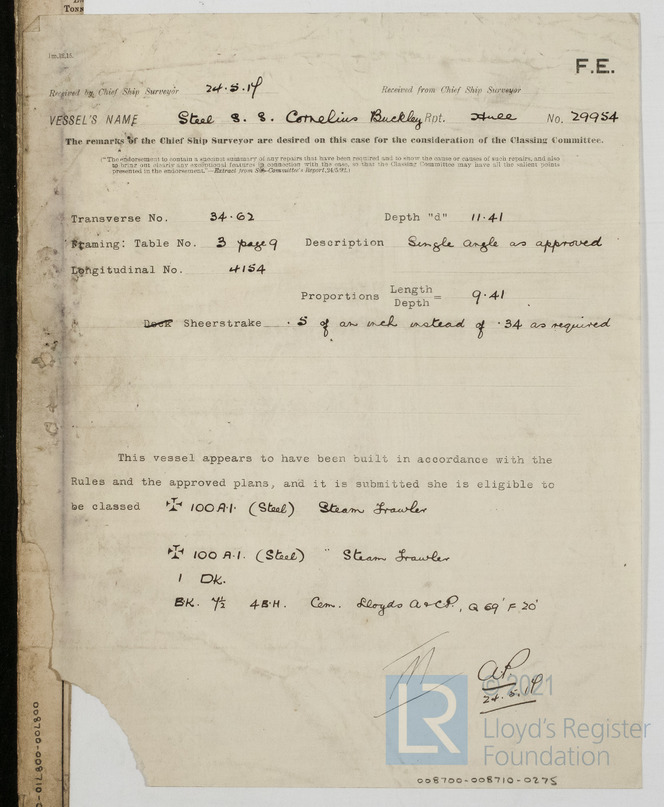 Tons
F.E.
Received by Chief Ship Surveyor 24.5.19 Received from Chief Ship Surveyor
VESSEL'S NAME Steel S. S. Cornelius Buckley Rpt. Hull No. 29954
The remarks of the Chief Ship Surveyor are desired on this case for the consideration of the Classing Committee.
("The endorsement to contain a succinct summary of any repairs that have been required and to show the cause or causes of such repairs, and also
to bring out clearly any exceptional features in connection with the case, so that the Classing Committee may have all the salient points
presented in the endorsement."—Extract from Sub-Committee's Report, 24/5/92.)
Transverse No. 34.62 Depth "d" 11.41
Framing: Table No. 3 page 9 Description Single angle as approved
Longitudinal No. 4154
Proportions Length / Depth = 9.41
Deck Sheerstrake .5 of an inch instead of .34 as required
This vessel appears to have been built in accordance with the
Rules and the approved plans, and it is submitted she is eligible to
be classed ✠ 100 A.1. (Steel) Steam Trawler
✠ 100 A.1. (Steel) " Steam Trawler
1 DK.
BK. 7½ 4 B.H. Cem. Lloyds A & CP., Q 69' F 20'
A.P.
24.5.19
© 2021
LR
Lloyd's Register
Foundation
008700-008710-0275
008700-008710-0